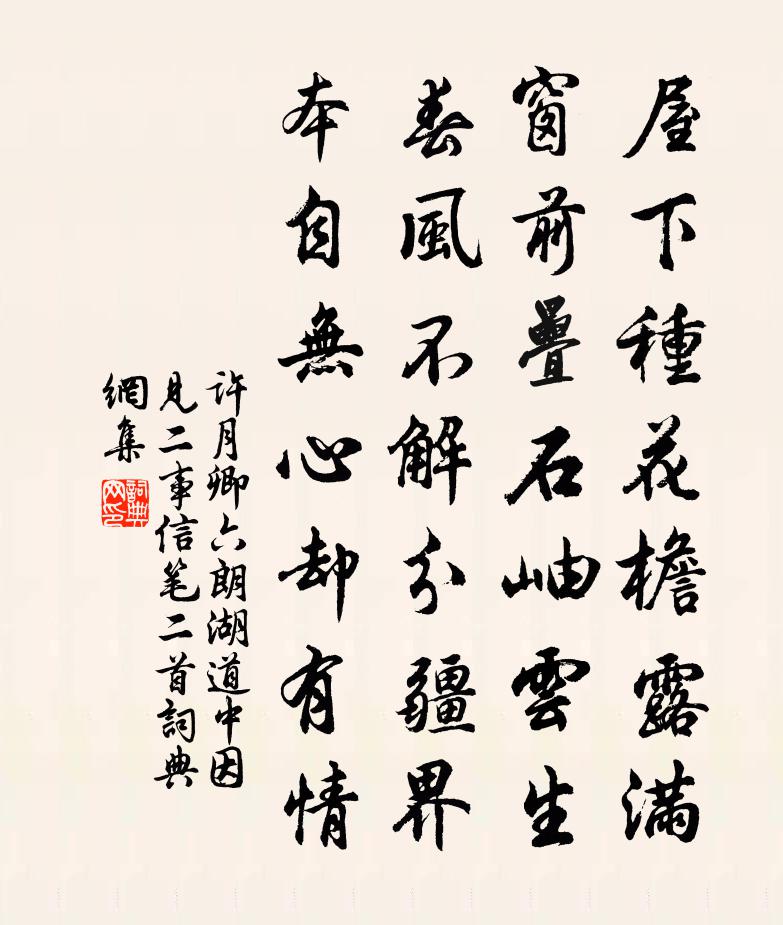 屋下種花檐露滿
窗前疊石岫雲生
春風不解分疆界
本自無心却有情
許月卿六朗湖道中因
見二事信笔二首詞典
網集
詞典網印